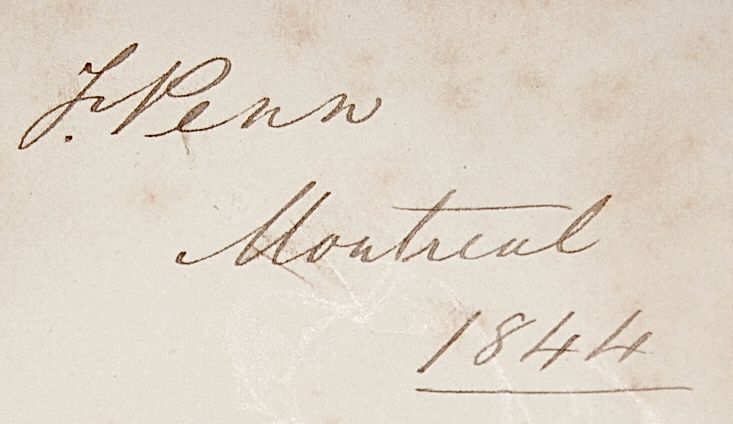 F. Penn
Montreal
1844